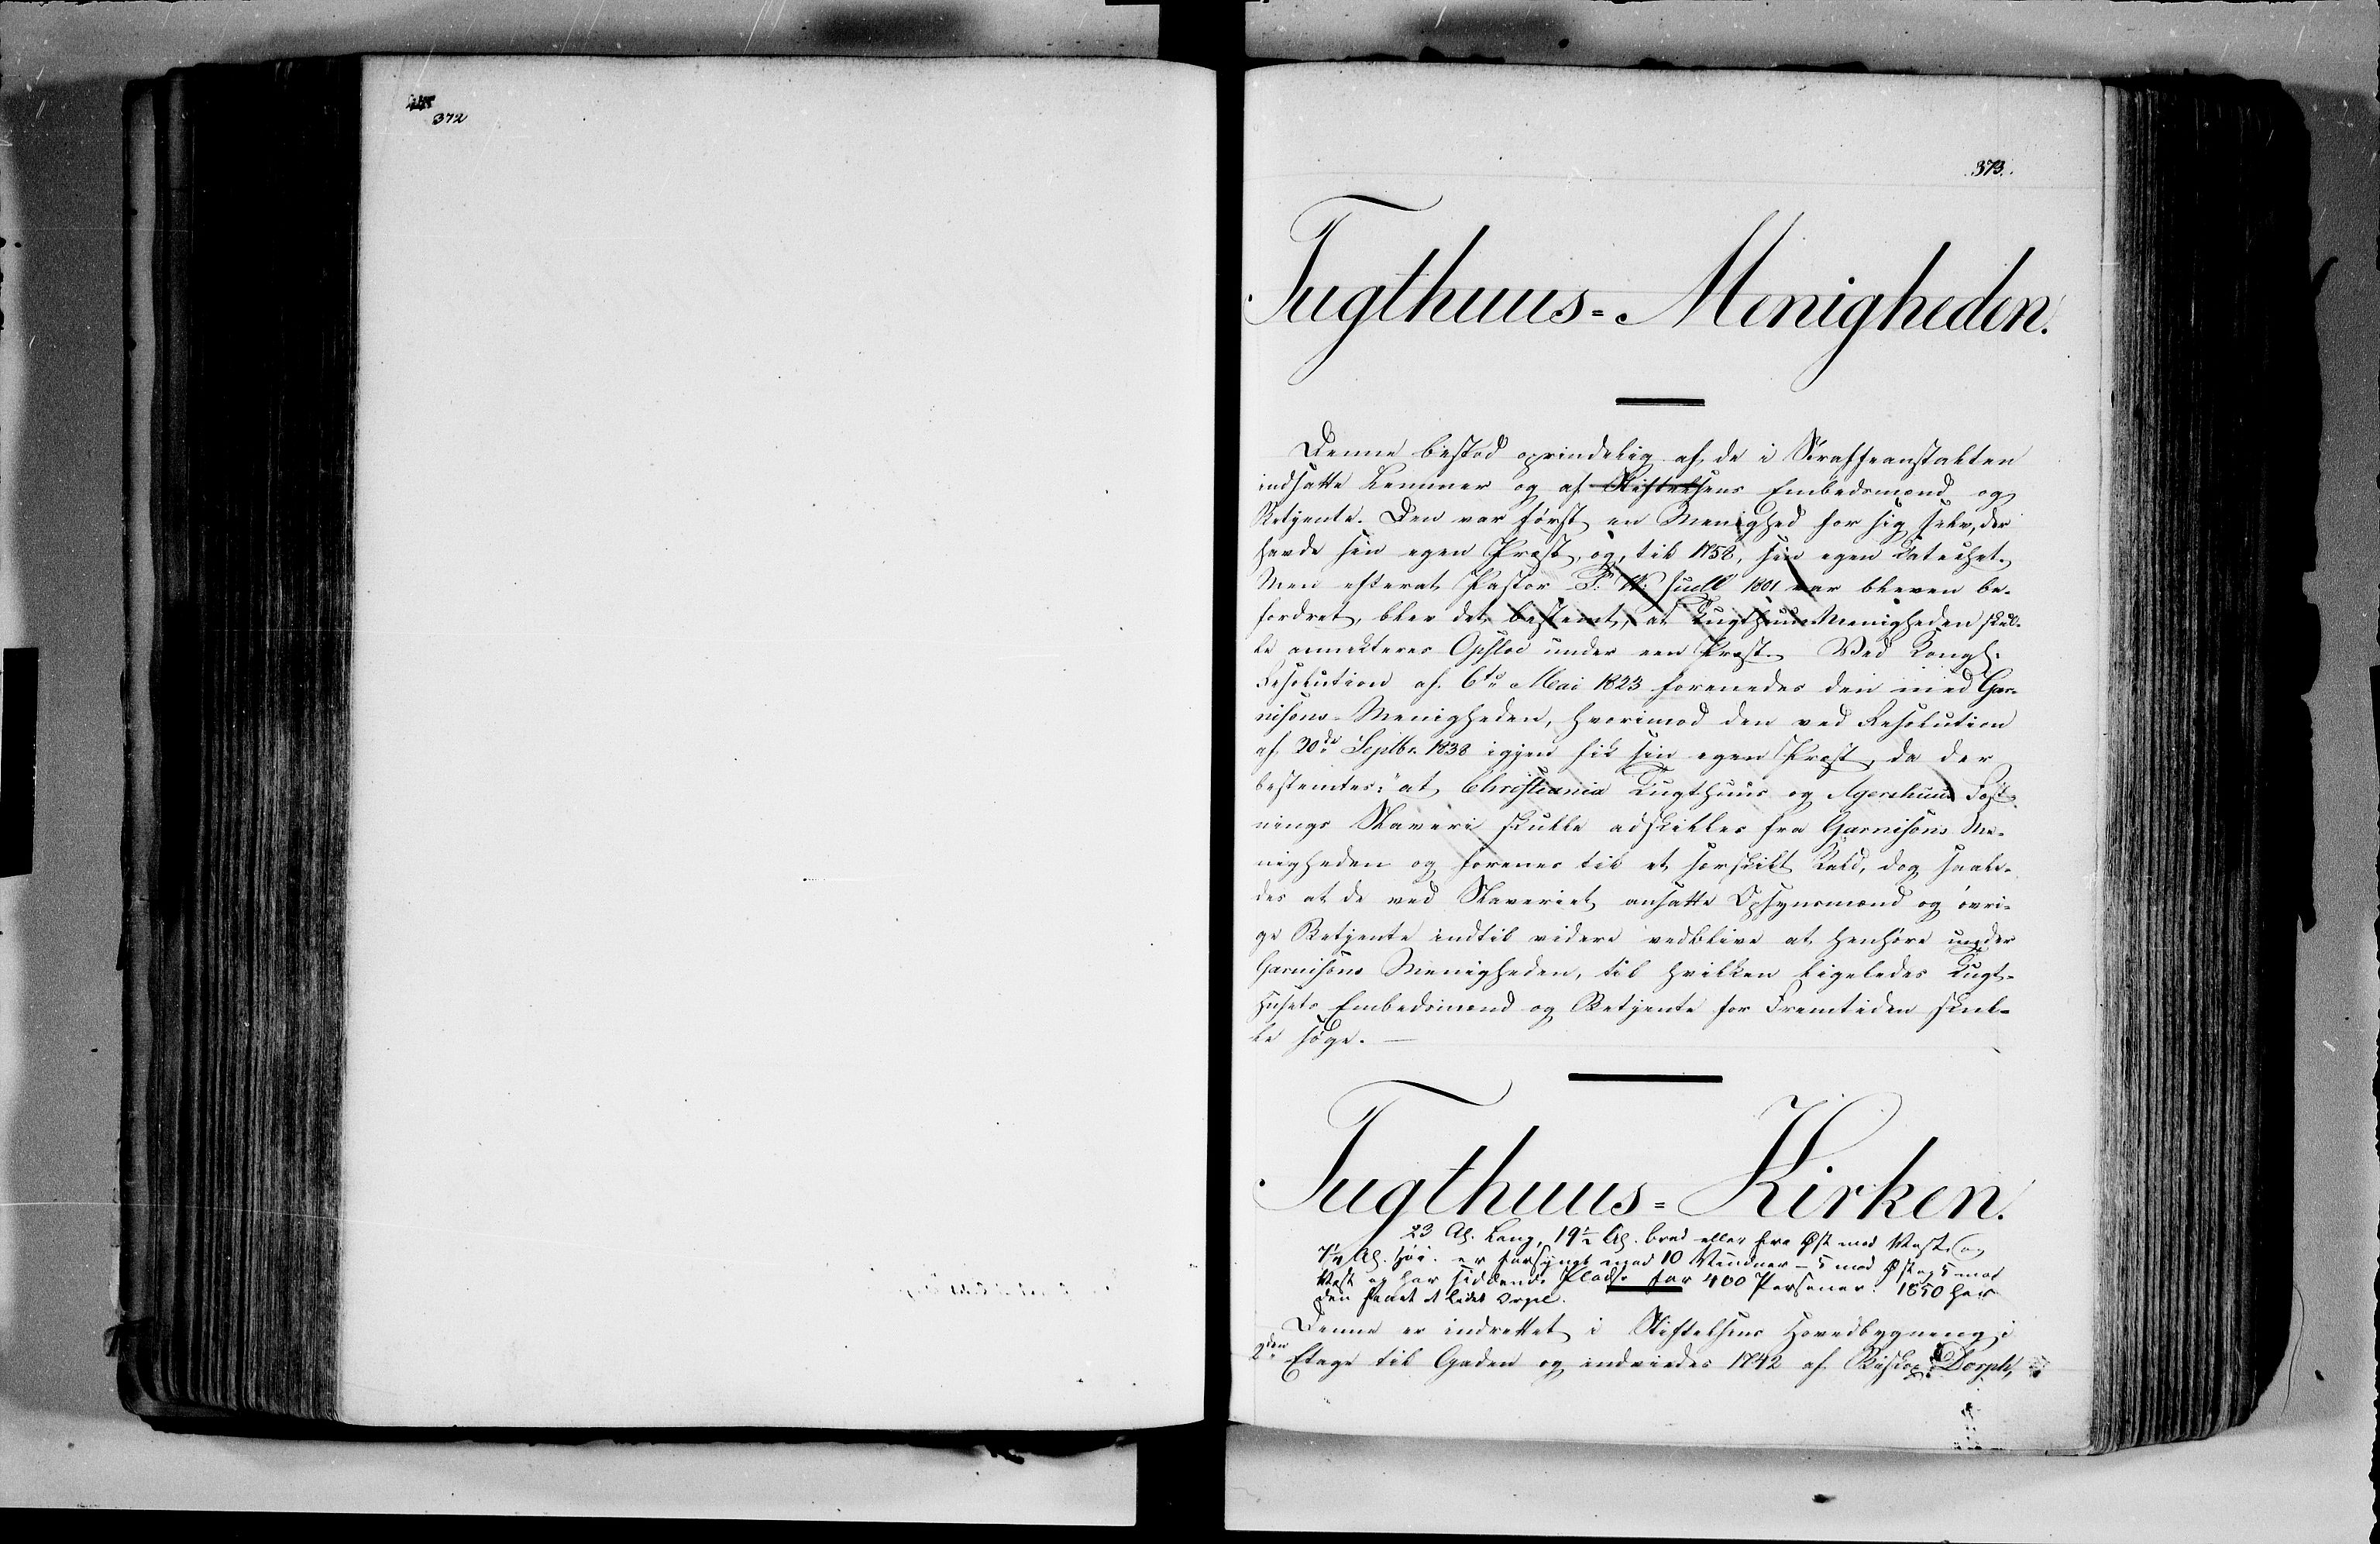 372
373.
Tugthuus-Menigheden.
Denne bestod oprindelig af de i Straffeanstalten
indsatte Lemmer og af Stiftelsens Embedsmænd og
Betjente. Den var først en Menighed for sig selv, der
havde sin egen Præst, og, til 1758, sin egen Catechet.
Men efterat Pastor F. W. 1801 var bleven be-
fordret, blev det bestemt, at Tugthuus Menigheden skul-
le annekteres Opsloe under een Præst. Ved Kongl.
Resolution af 6te Mai 1823 forenedes den med Gar-
nisons-Menigheden, hvorimod den ved Resolution
af 20de Septbr. 1838 igjen fik sin egen Præst, da der
bestemtes: "at Christiania Tugthuus og Agershuus Fæst-
nings Slaveri skulle adskilles fra Garnisons Me-
nigheden og forenes til et særskilt Kald, dog saale-
des at de ved Slaveriet ansatte Opsynsmænd og øvri-
ge Betjente indtil videre vedblive at henhøre under
Garnisons Menigheden, til hvilken ligeledes Tugt-
husets Embedsmænd og Betjente for Fremtiden skul-
le søge.
Tugthuus-Kirken.
23 Al. lang, 19½ Al. bred eller fra Øst mod Vest og
7¼ Al. høi. er forsynet med 10 Vinduer - 5 mod Øst og 5 mod
Vest og har siddende Plads for 400 Personer. 1850 har
den faaet et lidet Orgel.
Denne er indrettet i Stiftelsens Hovedbygning i
2den Etage til Gaden og indviedes 1742 af Biskop Dorph,